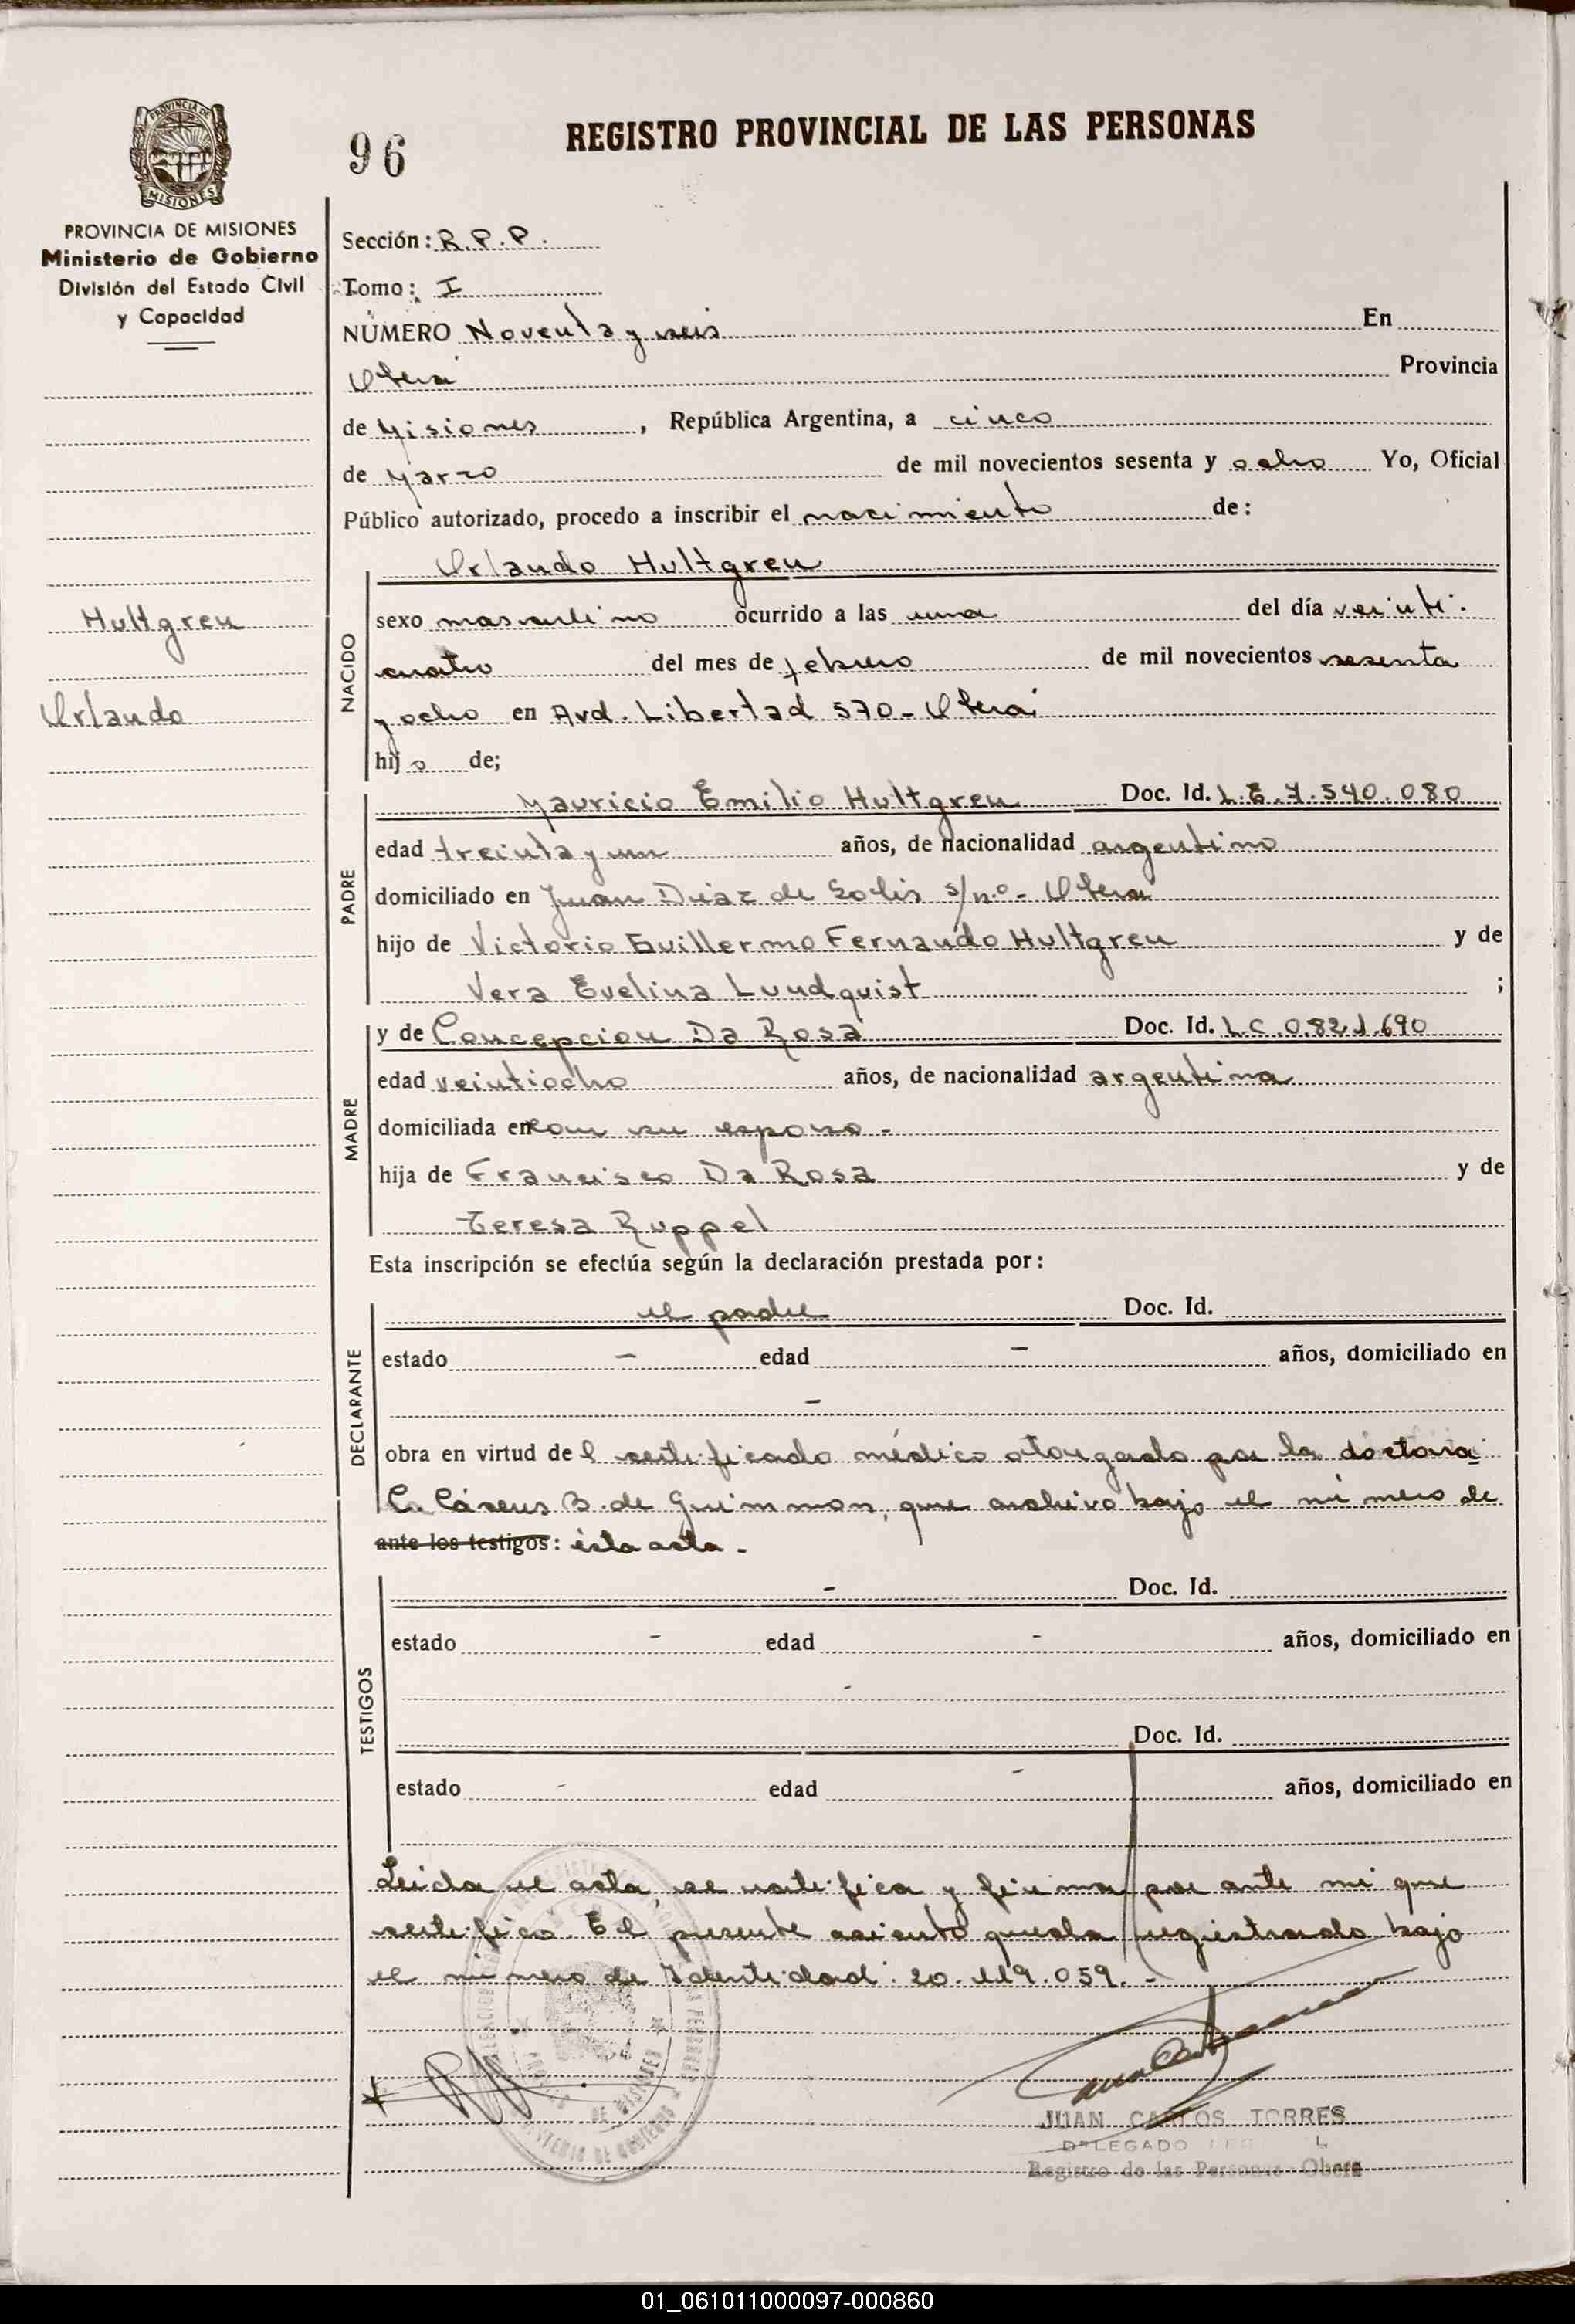 PROVINCIA DE MISIONES
96
REGISTRO PROVINCIAL DE LAS PERSONAS
PROVINCIA DE MISIONES
Ministerio de Gobierno
División del Estado Civil
y Capacidad
Hultgren
Orlando
Sección: R.P.P.
Tomo: I
NÚMERO Noventa y seis En
Oberá Provincia
de Misiones, República Argentina, a cinco
de Marzo de mil novecientos sesenta y ocho Yo, Oficial
Público autorizado, procedo a inscribir el nacimiento de:
Orlando Hultgren
NACIDO
sexo masculino ocurrido a las una del día veinti-
cuatro del mes de febrero de mil novecientos sesenta
y ocho en Avd. Libertad 570 - Oberá
hijo de;
PADRE
Mauricio Emilio Hultgren Doc. Id. L.E.7.540.080
edad treinta y un años, de nacionalidad argentino
domiciliado en Juan Diaz de Solis s/nº - Oberá
hijo de Victorio Guillermo Fernando Hultgren y de
Vera Evelina Lundquist ;
MADRE
y de Concepcion Da Rosa Doc. Id. L.C.0.821.690
edad veintiocho años, de nacionalidad argentina
domiciliada en con su esposo -
hija de Francisco Da Rosa y de
Teresa Ruppel
Esta inscripción se efectúa según la declaración prestada por:
DECLARANTE
el padre Doc. Id.
estado - edad - años, domiciliado en
-
obra en virtud del certificado médico otorgado por la doctora
B. de que archivo bajo el número de
ante los testigos: ésta acta -
TESTIGOS
- Doc. Id.
estado - edad - años, domiciliado en
-
Doc. Id.
estado - edad - años, domiciliado en
Leida el acta, se ratifica y firma por ante mi que
certifico. El presente asiento queda registrado bajo
el número de Identidad: 20.119.059. -
JUAN CARLOS TORRES
DELEGADO
Registro de las Personas Oberá
01_061011000097-000860